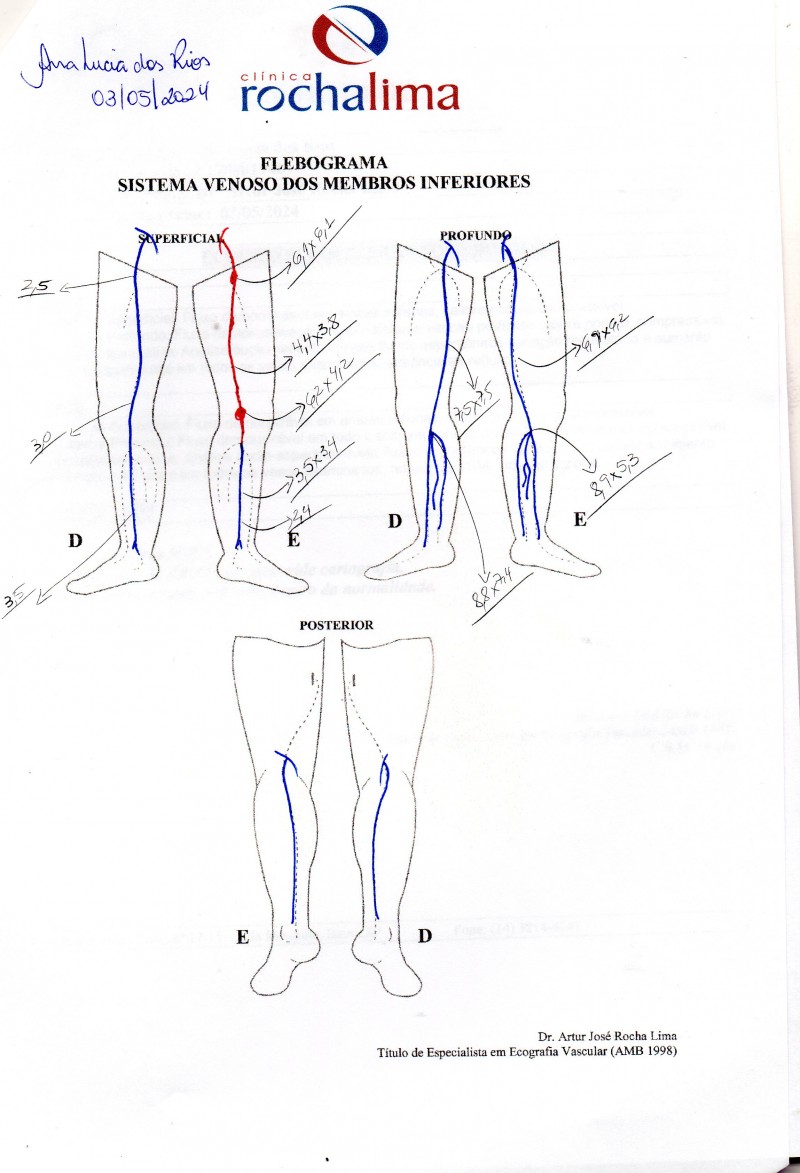 Ana Lucia dos Rios
03/05/2024
clínica
rochalima
FLEBOGRAMA
SISTEMA VENOSO DOS MEMBROS INFERIORES
SUPERFICIAL
PROFUNDO
2,5
3,0
3,5
4,4x3,8
6,2x4,2
3,5x3,4
2,4
7,5x7,5
8,9x5,3
8,8x7,4
D
E
D
E
POSTERIOR
E
D
Dr. Artur José Rocha Lima
Título de Especialista em Ecografia Vascular (AMB 1998)